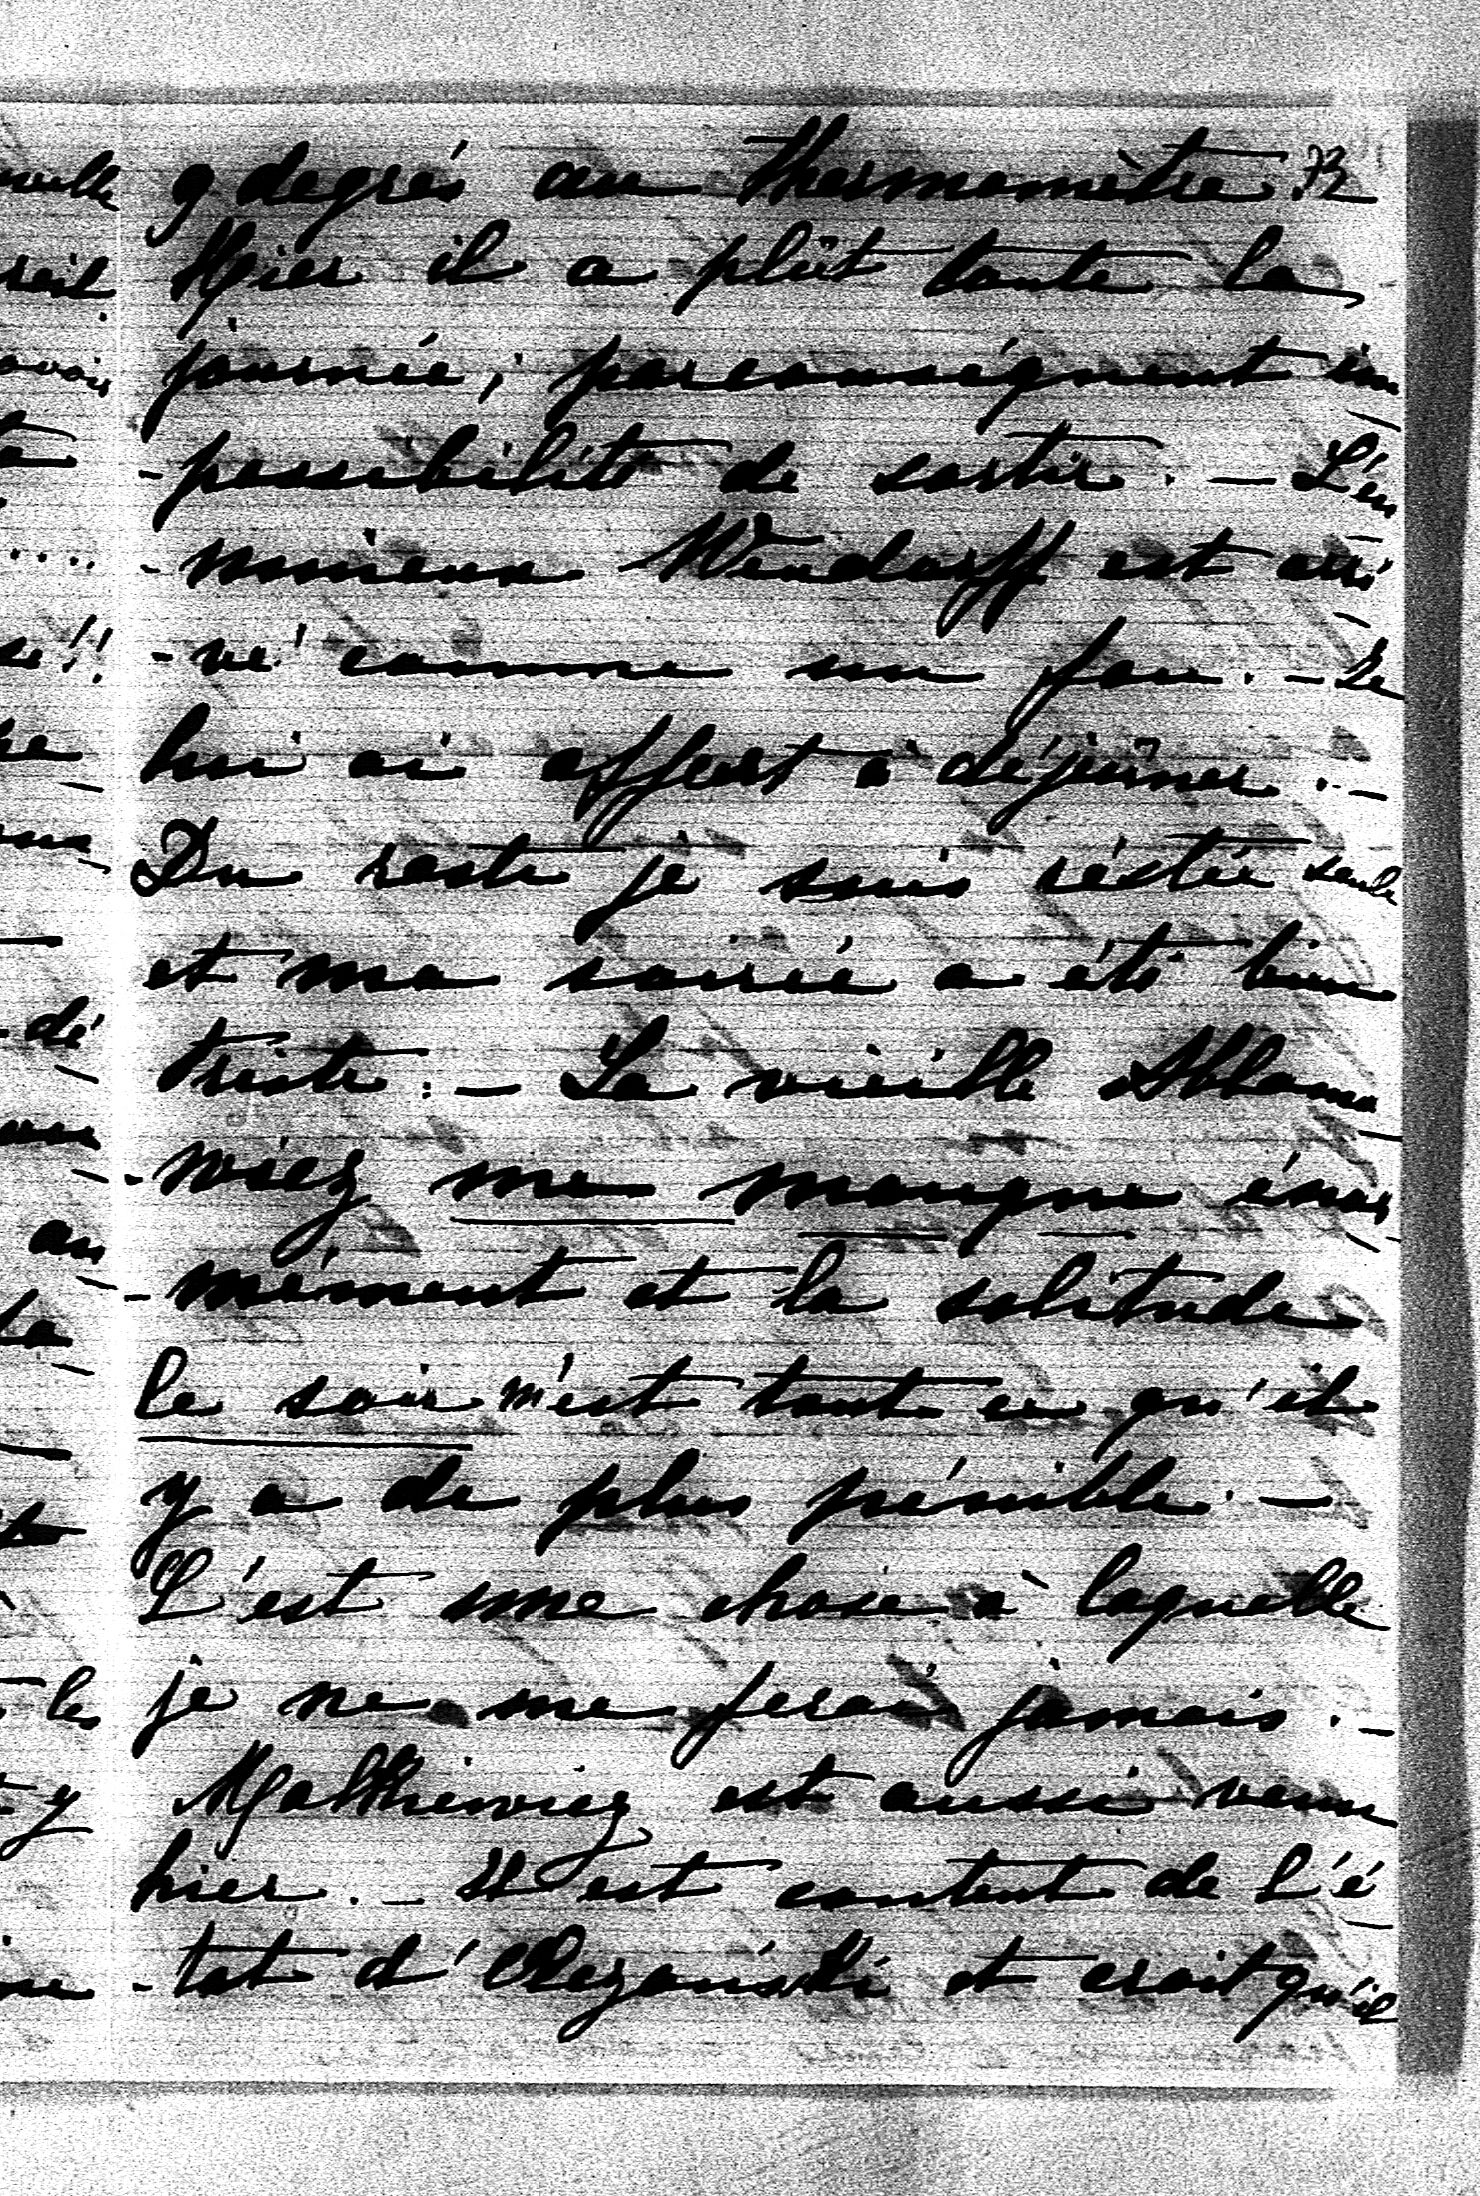 9 degrés au thermomètre. 73
Hier il a plût toute la
journée, parconséquent im
-possibilité de sortir. — L'en
-nuieux Wendorff est arri
-vé comme un fou. — Je
lui ai offert à déjeûner. —
Du reste je suis réstée seule
et ma soirée a été bien
triste. — La vieille Ablamo
-wicz me manque énor
-mément et la solitude
le soir m'est tout ce qu'il
y a de plus pénible. —
C'est une chose à laquelle
je ne me ferai jamais. —
Malkiewicz est aussi venu
hier. — Il est content de l'é
-tat d' et croit qu'il